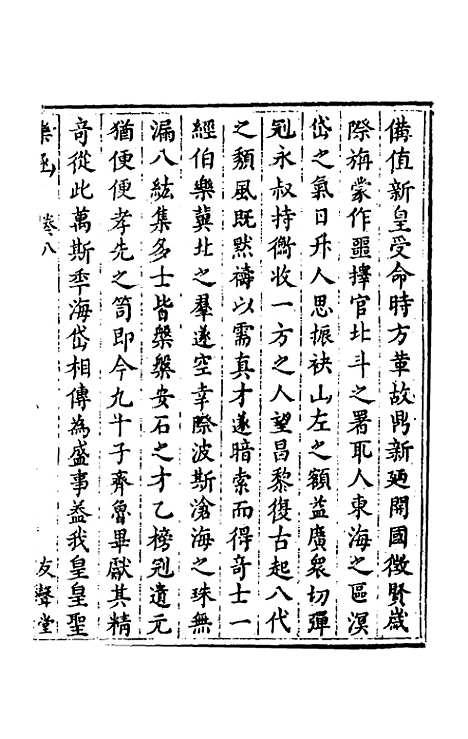 備值新皇受命時方革故鼎新廼開國徵賢歲
際旃蒙作噩擇官北斗之署取人東海之區溟
岱之氣日升人思振袂山左之額益廣衆切彈
冠永叔持衡收一方之人望昌黎復古起八代
之頽風既默禱以需真才遂暗索而得奇士一
經伯樂冀北之羣遂空幸際波斯滄海之珠無
漏八紘集多士皆槃槃安石之才乙榜列遺元
猶便便孝先之笥即今九斗子齊魯畢獻其精
奇從此萬斯年海岱相傳為盛事葢我皇皇聖
卷八
友聲堂